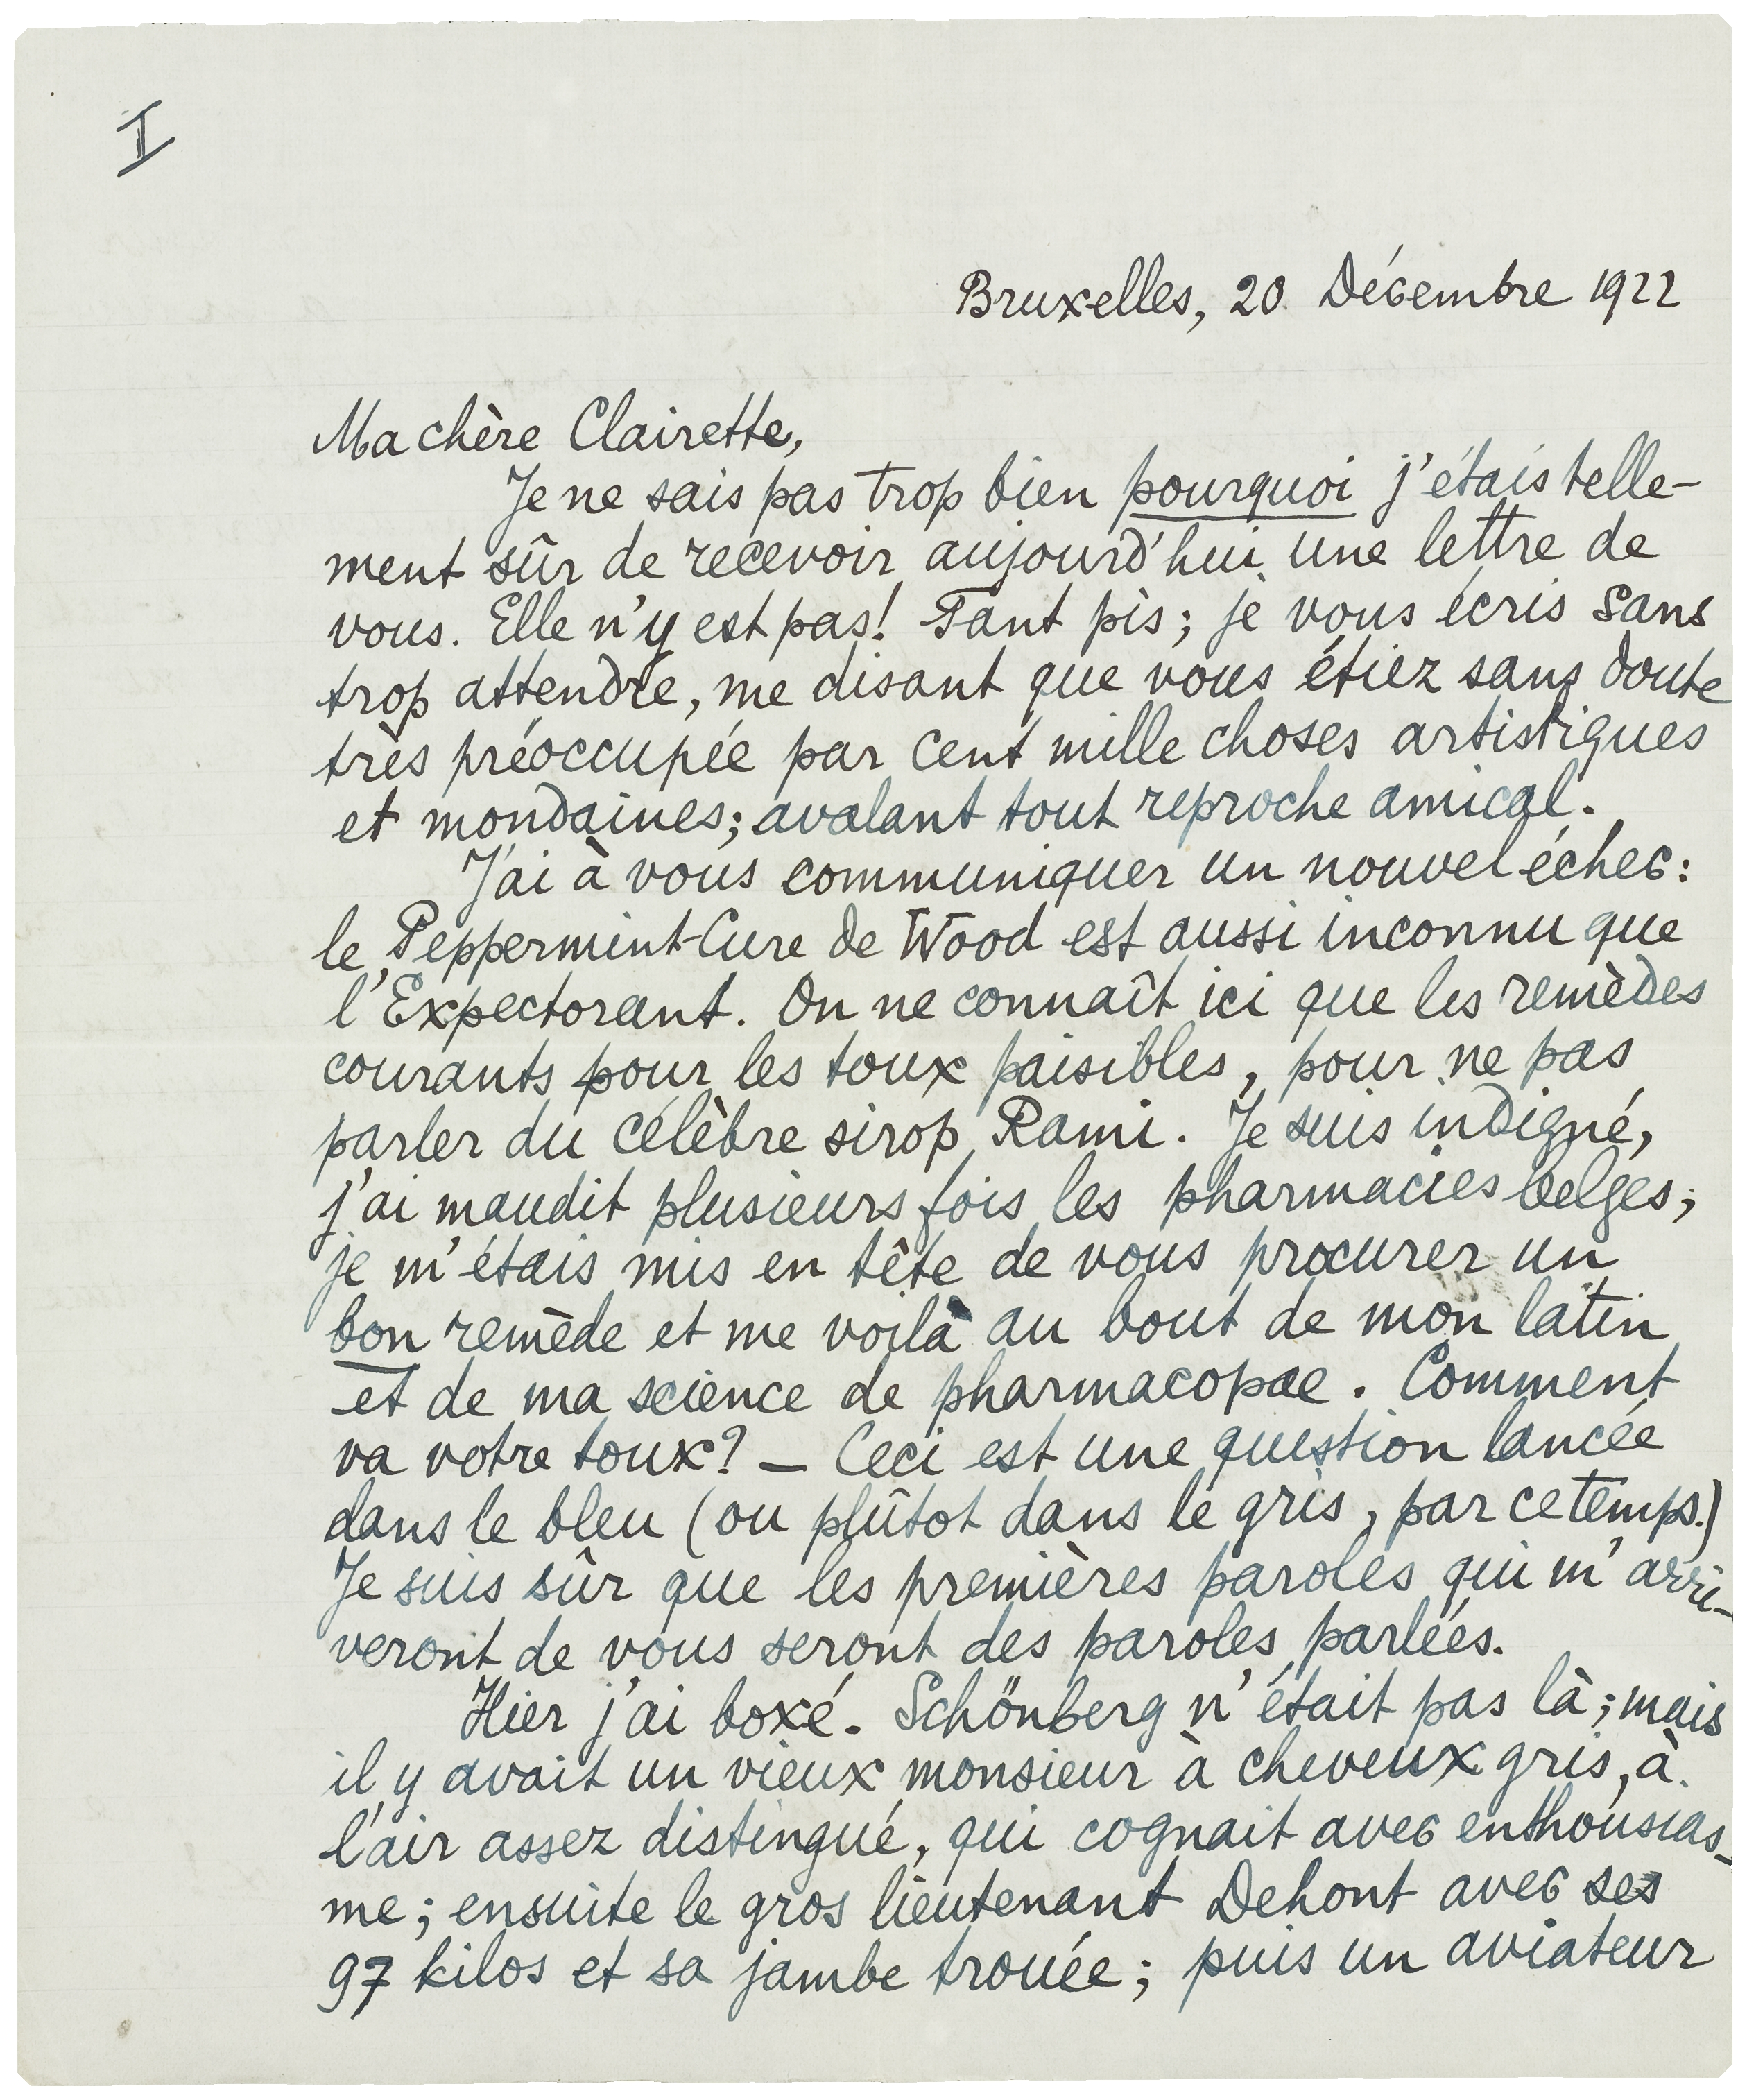 I
Bruxelles, 20 Décembre 1922
Ma chère Clairette,
Je ne sais pas trop bien pourquoi j'étais telle-
ment sûr de recevoir aujourd'hui une lettre de
vous. Elle n'y est pas! Tant pis; je vous écris sans
trop attendre, me disant que vous étiez sans doute
très préoccupée par cent mille choses artistiques
et mondaines; avalant tout reproche amical.
J'ai à vous communiquer un nouvel échec:
le Peppermint-Cure de Wood est aussi inconnu que
l'Expectorant. On ne connaît ici que les remèdes
courants pour les toux paisibles, pour ne pas
parler du célèbre sirop Rami. Je suis indigné,
j'ai maudit plusieurs fois les pharmacies belges;
je m'étais mis en tête de vous procurer un
bon remède et me voilà au bout de mon latin
et de ma science de pharmacopae. Comment
va votre toux? — Ceci est une question lancée
dans le bleu (ou plûtot dans le gris, par ce temps.)
Je suis sûr que les premières paroles qui m'arri-
veront de vous seront des paroles parlées.
Hier j'ai boxé. Schönberg n'était pas là; mais
il y avait un vieux monsieur à cheveux gris, à
l'air assez distingué, qui cognait avec enthousias-
me; ensuite le gros lieutenant Dehont avec ses
97 kilos et sa jambe trouée; puis un aviateur